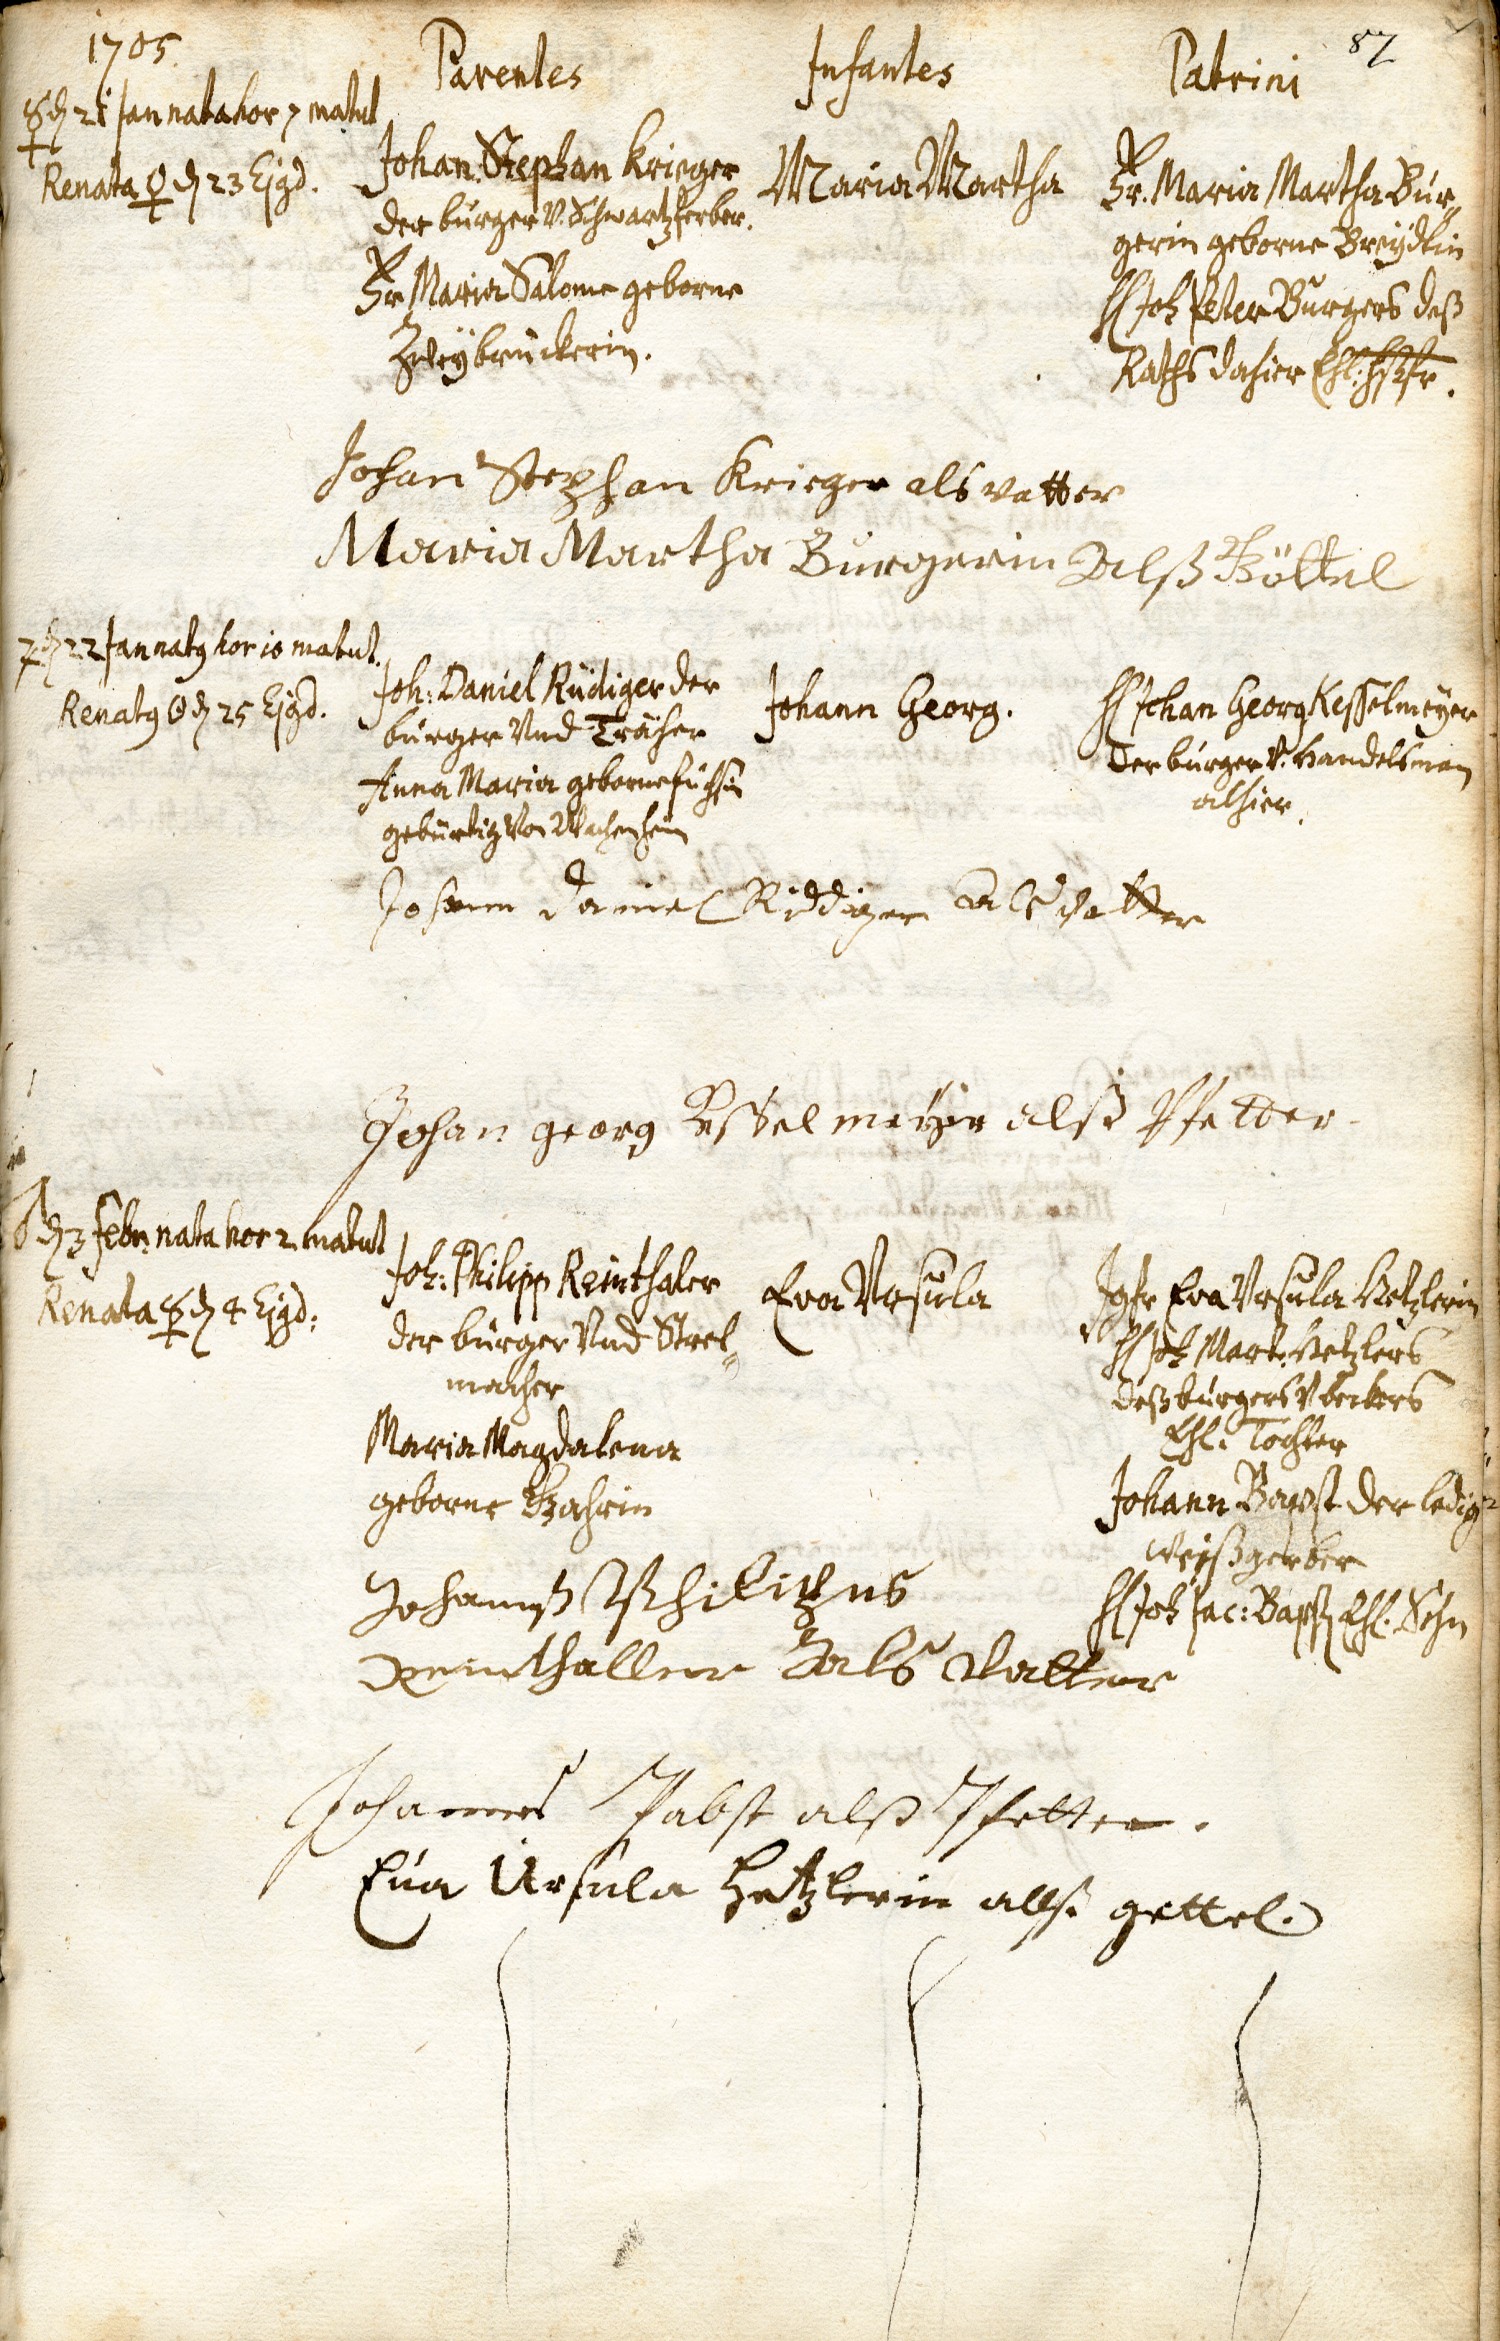 1705.
Parentes
Infantes
Patrini
87
☿ d 21 Jan nata hor 7 matut
Renata ♀ d 23 Ejgd.
Johan Stephan Krieger
der bürger V. Schwartzferber.
Fr. Maria Salome geborne
Zweybrückerin.
Maria Martha
Fr. Maria Martha Bur„
gerin geborne Breydtin
H Joh Peter Burgers deß
Raths dahier Ehl: Hßfr.
Johan Stephan Krieger als vatter
Maria Martha Burgerin Alß Göttel
♃ d 22 Jan natg hor 10 matut.
Renatg ☉ d 25 Ejgd.
Joh: Daniel Rüdiger der
bürger Vnd Träher
Anna Maria geborne füchsin
gebürtig Von Wachenheim
Johann Georg.
H Johan Georg Kesselmeyer
der bürger V. Handelsman
alhier.
Johann Daniel Riddiger Als Vatter
Johan georg Kesselmeyer alß Pfetter.
♂ d 3 febr. nata hor 2 matut
Renata ☿ d 4 Ejgd:
Joh: Philipp Reinthaler
der bürger Vnd Strel„
macher
Maria Magdalena
geborne
Eva Vrsula
Jgfr Eva Vrsula Hetzlerin
H Joh Mart: Hetzlers
deß bürgers V beckers
Ehl. Tochter
Johann Bapst der ledige
Weißgerber
H Joh Jac: Bapst Ehl. Sohn
Johannß Philippus
Reinthaller Als Vatter
Johannes Pabst alß Pfetter.
Eua Ursula Hetzlerin alß gettel.